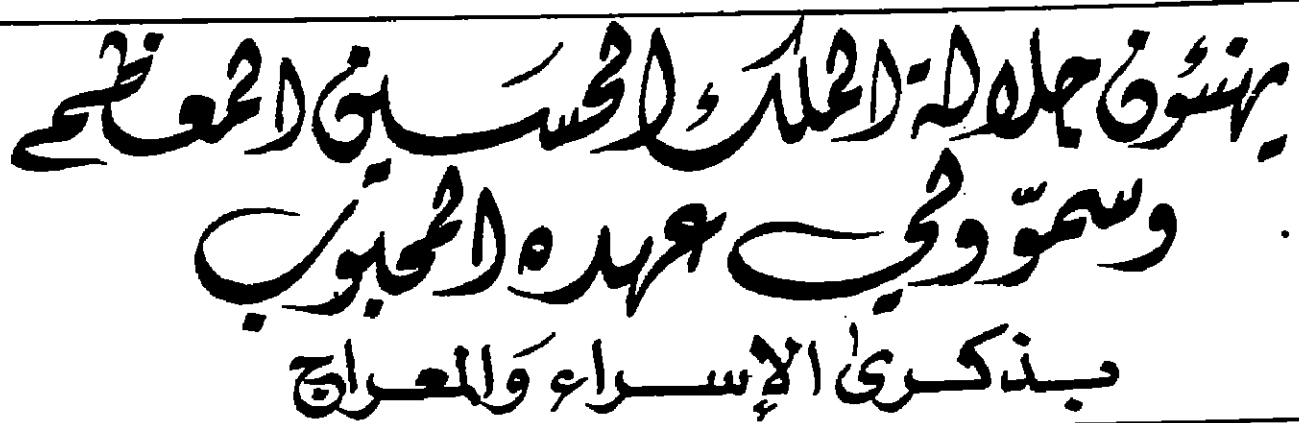 يهنئون جلالة الملك الحسين المعظم
وسموّ ولي عهده المحبوب
بذكرى الإسراء وَالمعراج